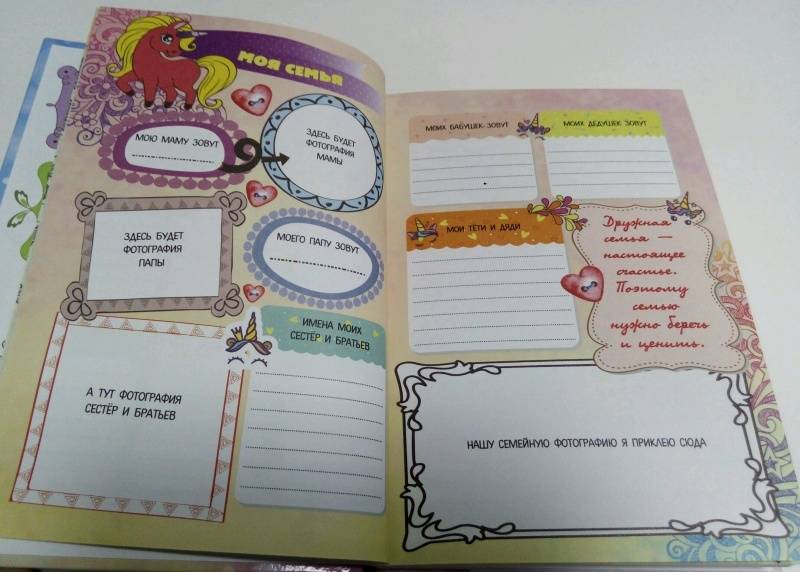 МОЯ СЕМЬЯ
МОЮ МАМУ ЗОВУТ
ЗДЕСЬ БУДЕТ
ФОТОГРАФИЯ
МАМЫ
ЗДЕСЬ БУДЕТ
ФОТОГРАФИЯ
ПАПЫ
МОЕГО ПАПУ ЗОВУТ
ИМЕНА МОИХ
СЕСТЁР И БРАТЬЕВ
А ТУТ ФОТОГРАФИЯ
СЕСТЁР И БРАТЬЕВ
МОИХ БАБУШЕК ЗОВУТ
МОИХ ДЕДУШЕК ЗОВУТ
МОИ ТЁТИ И ДЯДИ
Дружная
семья —
настоящее
счастье.
Поэтому
семью
нужно беречь
и ценить.
НАШУ СЕМЕЙНУЮ ФОТОГРАФИЮ Я ПРИКЛЕЮ СЮДА